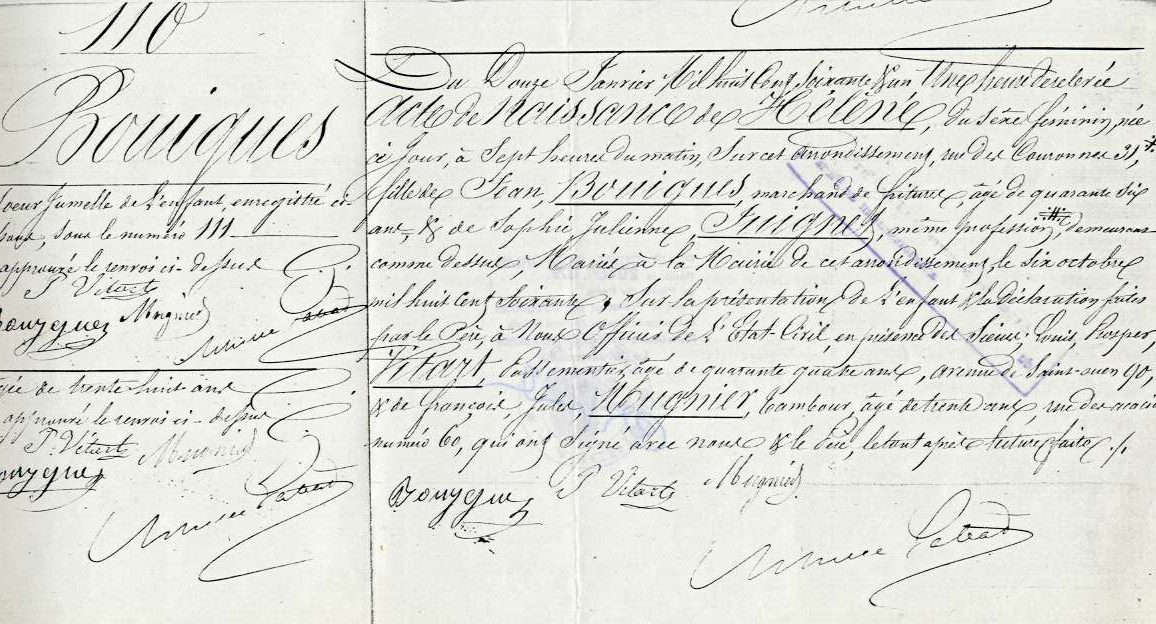 110
Bouigues
soeur jumelle de l'enfant enregistré ci-
sous, sous le numéro 111
approuvé le renvoi ci-dessus
P Vitart
Bouygues Mugnier
agée de trente huit ans
approuvé le renvoi ci-dessus
P. Vitart Mugnier
Bouygues
Du Douze Janvier Mil huit Cent Soixante & un Une heure de relevée
Acte de Naissance de Hélène, du sexe féminin, née
ce jour, à Sept heures du matin, Sur cet arrondissement, rue des Couronnes 31,*
fille de Jean, Bouigues, marchand de friture, âgé de quarante six
ans, & de Sophie Julienne, Juignet, même profession, # demeurant
comme dessus, Mariés à la Mairie de cet arrondissement, le six octobre
mil huit Cent Soixante, Sur la présentation de l'enfant & la déclaration faites
par le Père, à Nous Officier de l'Etat-Civil, en présence des Sieurs: Louis, Prosper,
Vitart, Passementier, âgé de quarante quatre ans, avenue de Saint-ouen 90,
& de françois Jules, Mugnier, tambour, âgé de trente ans, rue des acacias
numéro 60, qui ont Signé avec nous & le Père, le tout après lecture faite ./.
Bouygues P Vitart Mugnier